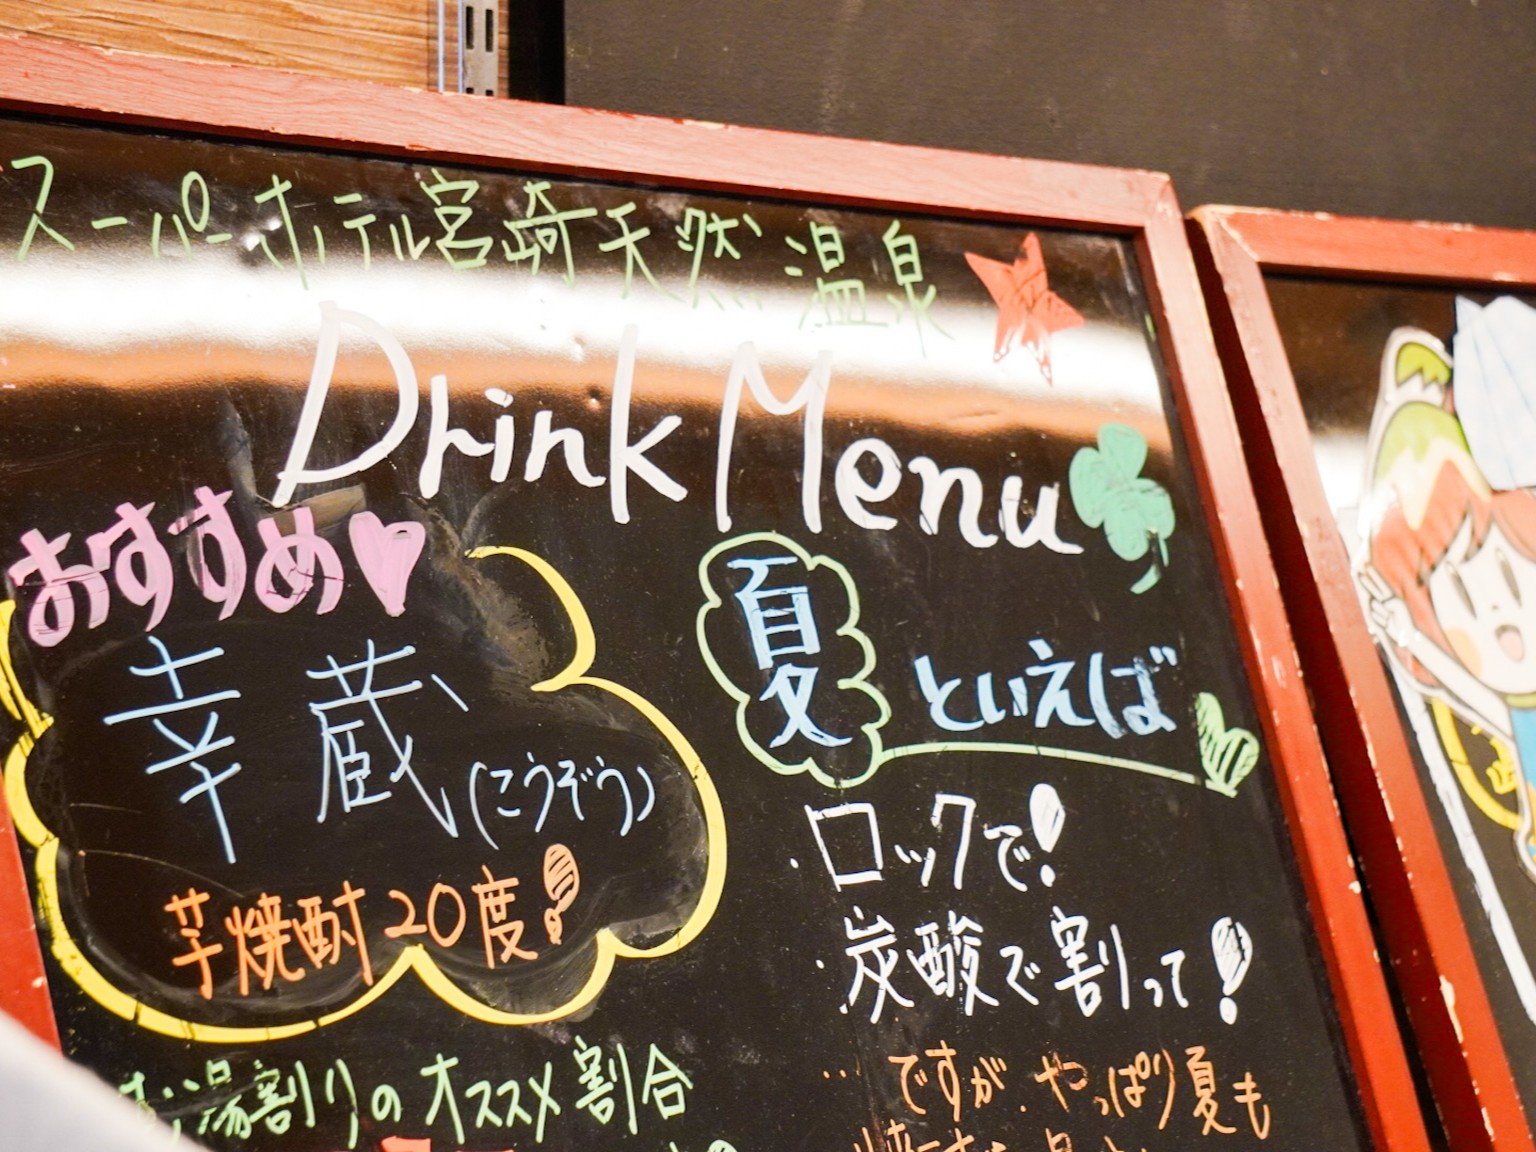 スーパーホテル宮崎天然温泉
Drink Menu
おすすめ
幸蔵(こうぞう)
芋焼酎20度!
湯割りのオススメ割合
夏といえば
・ロックで!
・炭酸で割って!
…ですが、やっぱり夏も